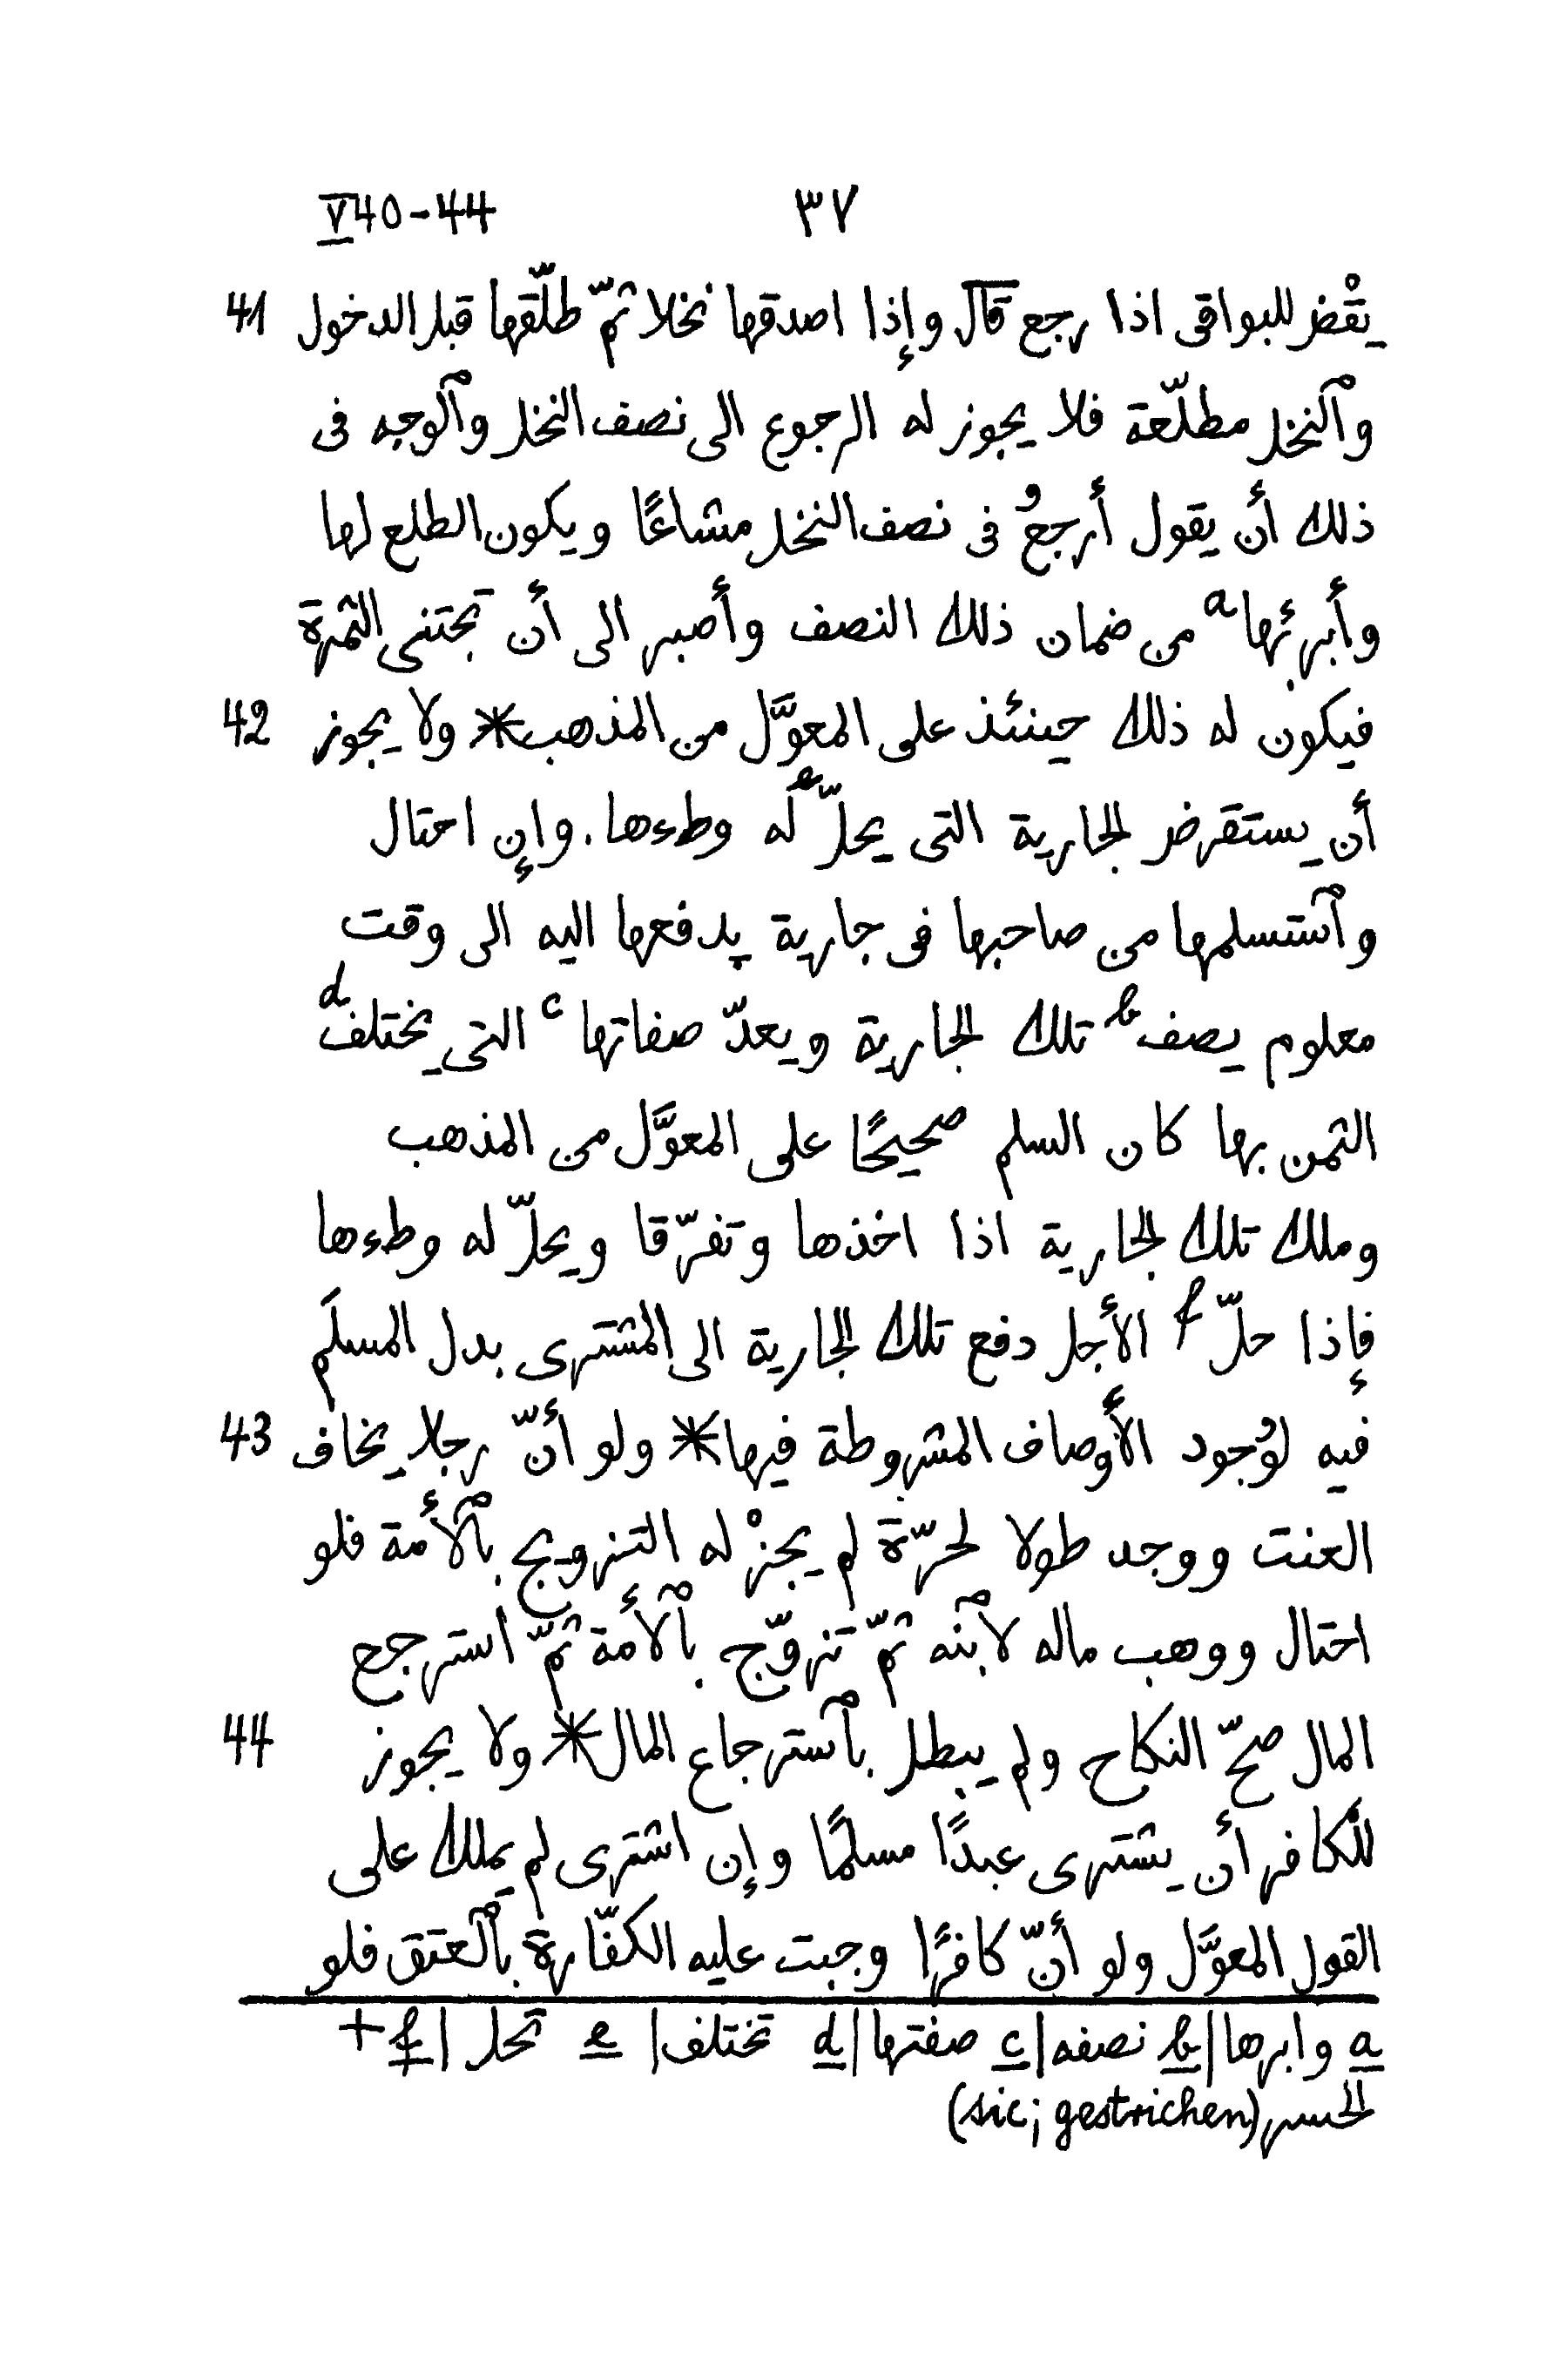 V 40-44 ٣٧
يقْض للبواقى اذا رجع قال وإذا اصدقها نخلا ثمّ طلّقها قبل الدخول 41
وٱلنخل مطلّعة فلا يجوز له الرجوع الى نصف النخل وٱلوجه فى
ذلك أن يقول أرجعُ فى نصف النخل مشاعًا ويكون الطلع لها
وأبرئها a من ضمان ذلك النصف وأصبر الى أن تجتنى الثمرة
فيكون له ذلك حينئذ على المعوَّل من المذهب * ولا يجوز 42
أن يستقرض الجارية التى يحلّ e له وطءها. وإن احتال
وٱستسلمها من صاحبها فى جارية يدفعها اليه الى وقت
معلوم يصف b تلك الجارية ويعدّ صفاتها c التى يختلف d
الثمن بها كان السلم صحيحًا على المعوَّل من المذهب
وملك تلك الجارية اذا اخذها وتفرّقا ويحلّ له وطءها
فإذا حلّ f الأجل دفع تلك الجارية الى المشترى بدل المسلَم
فيه لوُجود الأوصاف المشروطة فيها * ولو أنّ رجلا يخاف 43
العنت ووجد طولا لحرّة لم يجزْ له التزويج بٱلأمة فلو
احتال ووهب ماله لٱبنه ثمّ تزوّج بٱلأمة ثمّ استرجع
المال صحّ النكاح ولم يبطل بٱسترجاع المال * ولا يجوز 44
للكافر أن يشترى عبدًا مسلمًا وإن اشترى لم يملك على
القول المعوَّل ولو أنّ كافرًا وجبت عليه الكفّارة بٱلعتق فلو
a وابرها | b نصفه | c صفتها | d تختلف | e تحل | f +
(sic; gestrichen)